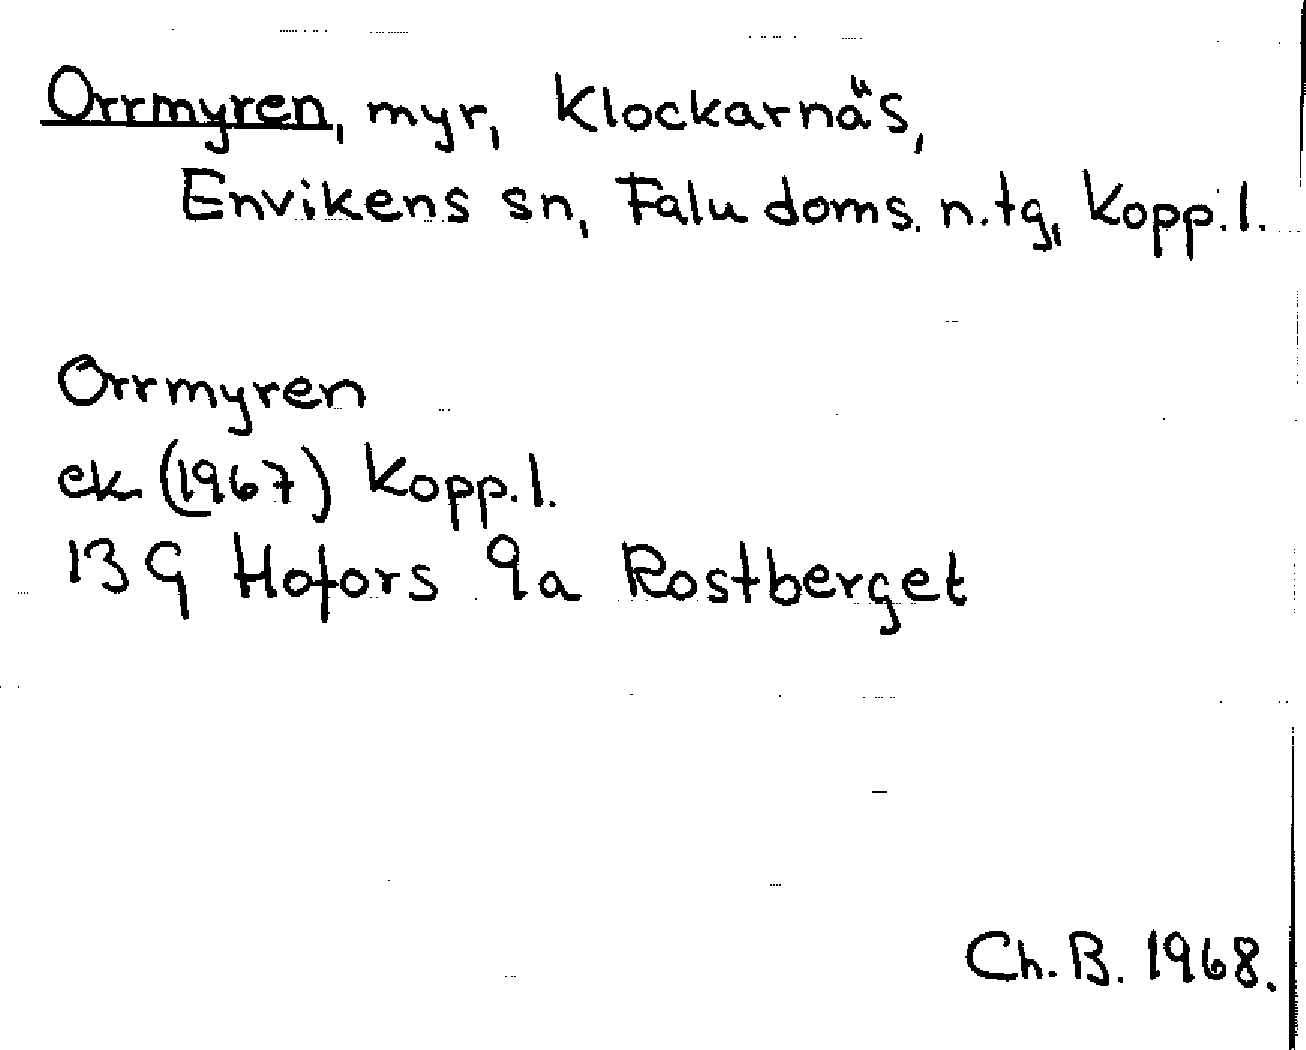 Orrmyren, myr, Klockarnäs,
Envikens sn, Falu doms. n.tg, Kopp. l.
Orrmyren
ek (1967) Kopp. l.
13 G Hofors 9a Rostberget
Ch. B. 1968.